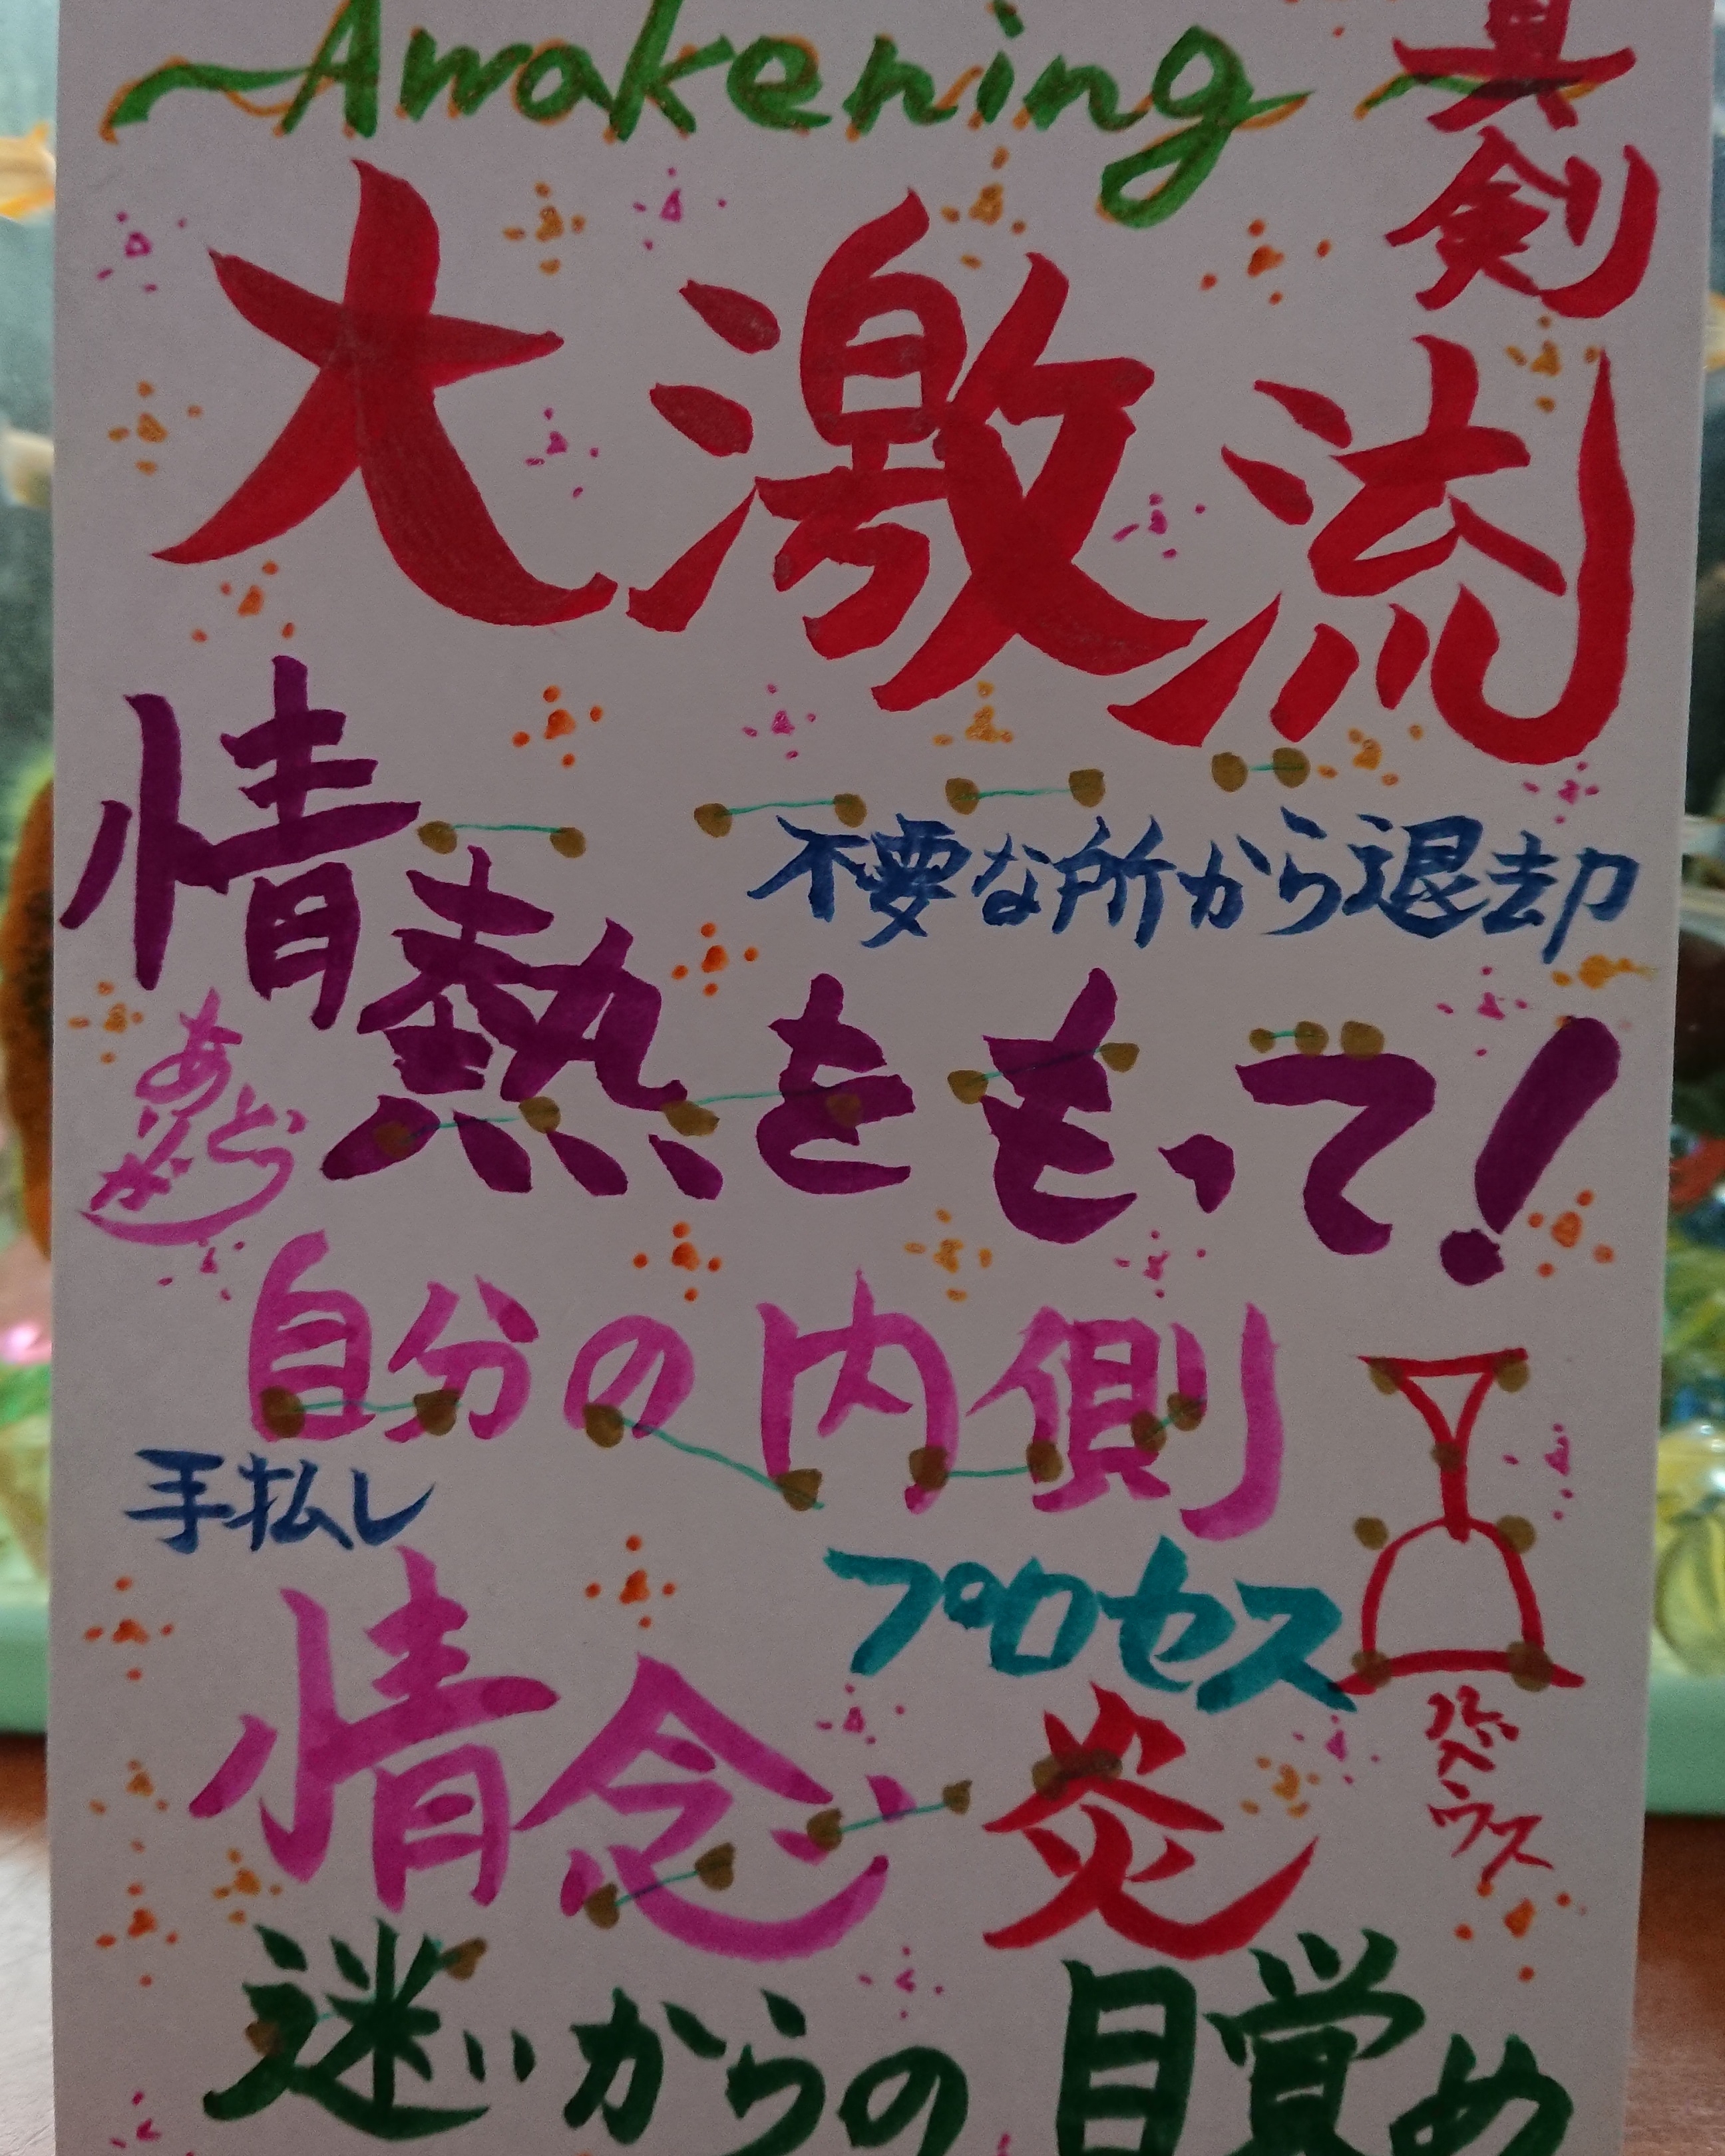 Awakening
真剣
大激流
情熱をもって!
不要な所から退却
ありがとう
自分の内側
手払し
プロセス
情念
炎
迷いからの目覚め